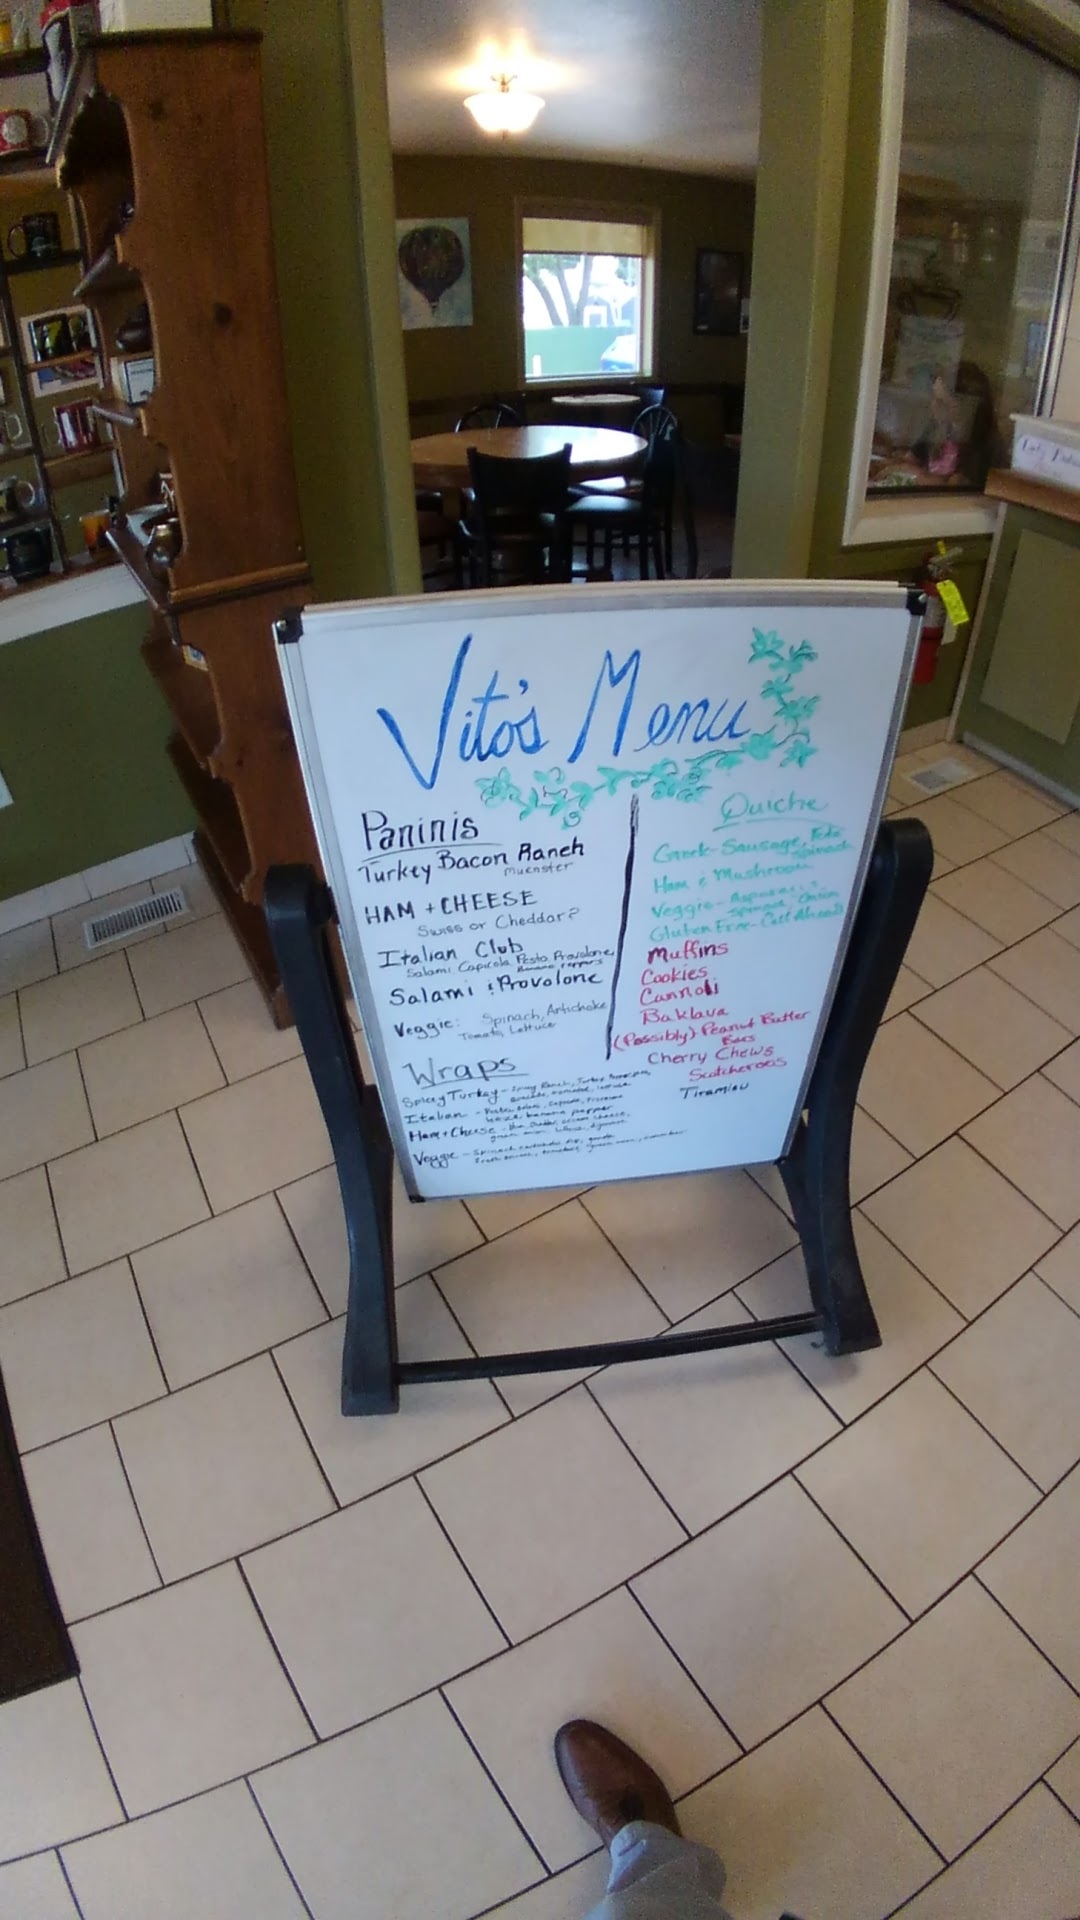 Vito's Menu
Paninis
Turkey Bacon Ranch
muenster
HAM + CHEESE
Swiss or Cheddar?
Italian Club
Salami Capicola Pesto Provolone
Banana Peppers
Salami & Provolone
Veggie: Spinach, Artichoke
Tomato, Lettuce
Wraps
Spicy Turkey - Spicy Ranch, Turkey
Italian -
banana pepper
Ham + Cheese -
Veggie - Spinach
Quiche
Greek - Sausage, Feta
Spinach
Ham & Mushroom
Veggie - Asparagus
Spinach Onion
Gluten Free - Call Ahead
Muffins
Cookies
Cannoli
Baklava
(Possibly) Peanut Butter
Bars
Cherry Chews
Scotcheroos
Tiramisu